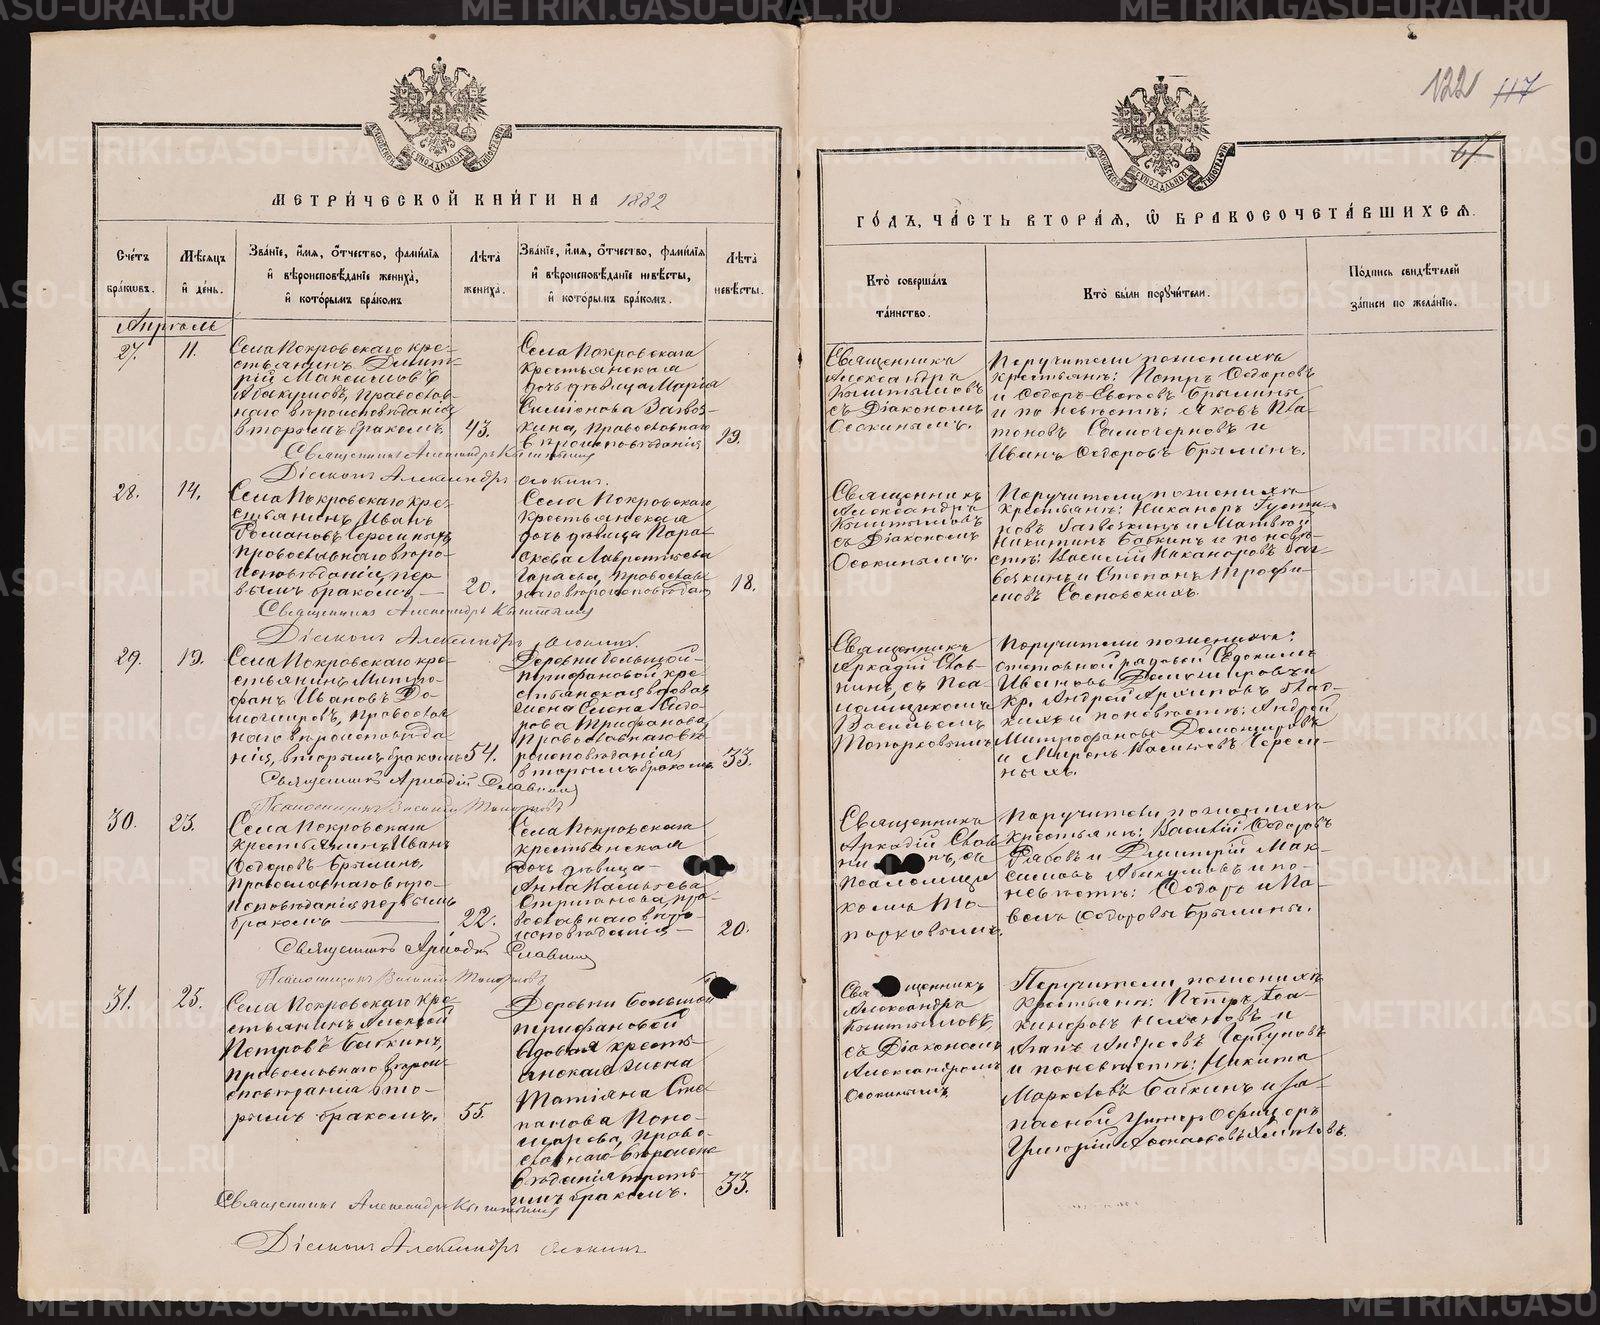 МЕТРИ́ЧЕСКОЙ КНИ́ГИ НА 1882
Сче́тъ бра́кѡвъ.
Мѣ́сяцъ и҆ де́нь.
Зва́нїе, и҆́мя, ѻ҆́тчество, фами́лїя и҆ вѣроисповѣ́данїе жениха̀, и҆ кото́рымъ бра́комъ
Лѣ́та жениха̀.
Зва́нїе, и҆́мя, ѻ҆́тчество, фами́лїя и҆ вѣроисповѣ́данїе невѣ́сты, и҆ кото́рымъ бра́комъ.
Лѣ́та невѣ́сты.
Апрѣль
27.
11.
Села Покровскаго кре-
стьянинъ Димит-
рій Максимовъ
Абакумовъ, православ-
наго вѣроисповѣданія
вторымъ бракомъ.
43.
Села Покровскаго
крестьянская
дочь дѣвица Марія
Симіонова Загвоз-
кина, православнаго
вѣроисповѣданія
19.
Священникъ Александръ Кыштымов
Діаконъ Александръ Осокинъ.
28.
14.
Села Покровскаго кре-
стьянинъ Иванъ
Романовъ Череминых
православнаго вѣро-
исповѣданія, пер-
вымъ бракомъ.
20.
Села Покровскаго
крестьянская
дочь дѣвица Пара-
скева Лаврентьева
православ-
наго вѣроисповѣдан
18.
Священникъ Александръ Кыштымов
Діаконъ Александръ Осокинъ.
29.
19.
Села Покровскаго кре-
стьянинъ Митро-
фанъ Ивановъ До-
можировъ, православ-
наго вѣроисповѣда-
нія, вторымъ бракомъ
54.
Деревни Большой
Трифановой кре-
стьянская вдовая
жена Елена Сидо-
рова Трифанова,
православнаго вѣ-
роисповѣданія,
вторымъ бракомъ.
33.
Священникъ Аркадій Славнин
Псаломщикъ Василій Топорковъ
30.
23.
Села Покровскаго
крестьянинъ Иванъ
Ѳедоровъ Брылинъ,
православнаго вѣро-
исповѣданія первымъ
бракомъ
22.
Села Покровскаго
крестьянская
дочь дѣвица
Анна Васильева
Стриганова, пра-
вославнаго вѣро-
исповѣданія
20.
Священникъ Аркадій Славнин
Псаломщикъ Василій Топорковъ
31.
25.
Села Покровскаго кре-
стьянинъ Алексѣй
Петровъ Бабкинъ,
православнаго вѣрои-
сповѣданія вто-
рымъ бракомъ.
55.
Деревни Большой
Трифановой
вдовая кресть-
янская жена
Татіана Сте-
панова Поно-
марева, право-
славнаго вѣроиспо-
вѣданія треть-
имъ бракомъ.
33.
Священникъ Александръ Кыштымов
Діаконъ Александръ Осокинъ
122 117
67
ГО́ДЪ, ЧА́СТЬ ВТОРА́Я, Ѡ҆ БРАКОСОЧЕТА́ВШИХСЯ.
Кто̀ соверша́лъ та́инство.
Кто̀ бы́ли порꙋчи́тели.
По́дпись свидѣ́телей за́писи по жела́нїю.
Священникъ
Александръ
Кыштымовъ
съ Діакономъ
Осокинымъ.
Поручители по женихѣ
крестьяне: Петръ Ѳедоровъ
и Ѳедоръ Брылины
и по невѣстѣ: Яковъ Пла-
тоновъ Самочерновъ и
Иванъ Ѳедоровъ Брылинъ.
Священникъ
Александръ
Кыштымовъ
съ Діакономъ
Осокинымъ.
Поручители по женихѣ
крестьяне: Никаноръ Густи-
новъ Загвозкинъ и Матвѣй
Никитинъ Бабкинъ и по невѣ-
стѣ: Василій Никаноровъ Заг-
возкинъ и Степанъ Трофи-
мовъ Сосновскихъ.
Священникъ
Аркадій Слав-
нинъ, съ Пса-
ломщикомъ
Васильемъ
Топорковымъ
Поручители по женихѣ:
отставной рядовой Евдокимъ
Ивановъ Доможировъ и
кр. Андрей Архиповъ Глад-
кихъ и по невѣстѣ: Андрей
Митрофановъ Доможировъ
и Миронъ Васильевъ Череми-
ныхъ.
Священникъ
Аркадій Слав-
нинъ, съ
Псаломщи-
комъ То-
порковымъ.
Поручители по женихѣ
крестьяне: Василій Ѳедоровъ
и Димитрій Мак-
симовъ Абакумовъ и по-
невѣстѣ: Ѳедоръ и Па-
велъ Ѳедоровы Брылины.
Священникъ
Александръ
Кыштымовъ,
съ Діакономъ
Александромъ
Осокинымъ
Поручители по женихѣ
крестьяне: Петръ Іоа-
кинфовъ и
Агапъ Андреевъ Горбуновъ
и по невѣстѣ: Никита
Марковъ Бабкинъ и за-
пасной Унтеръ Офицеръ
Григорій